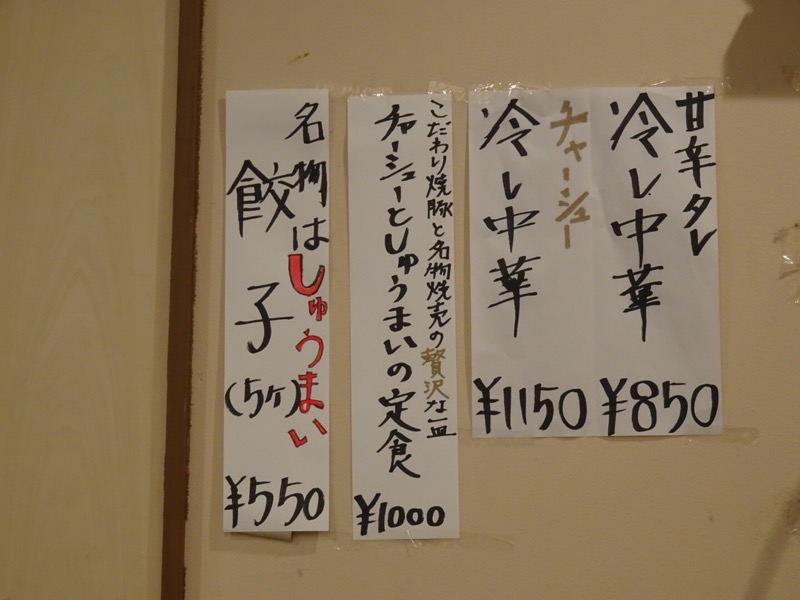 甘辛タレ
冷し中華
¥850
チャーシュー
冷し中華
¥1150
こだわり焼豚と名物焼売の贅沢な一皿
チャーシューとしゅうまいの定食
¥1000
名物はしゅうまい
餃子(5ケ)
¥550